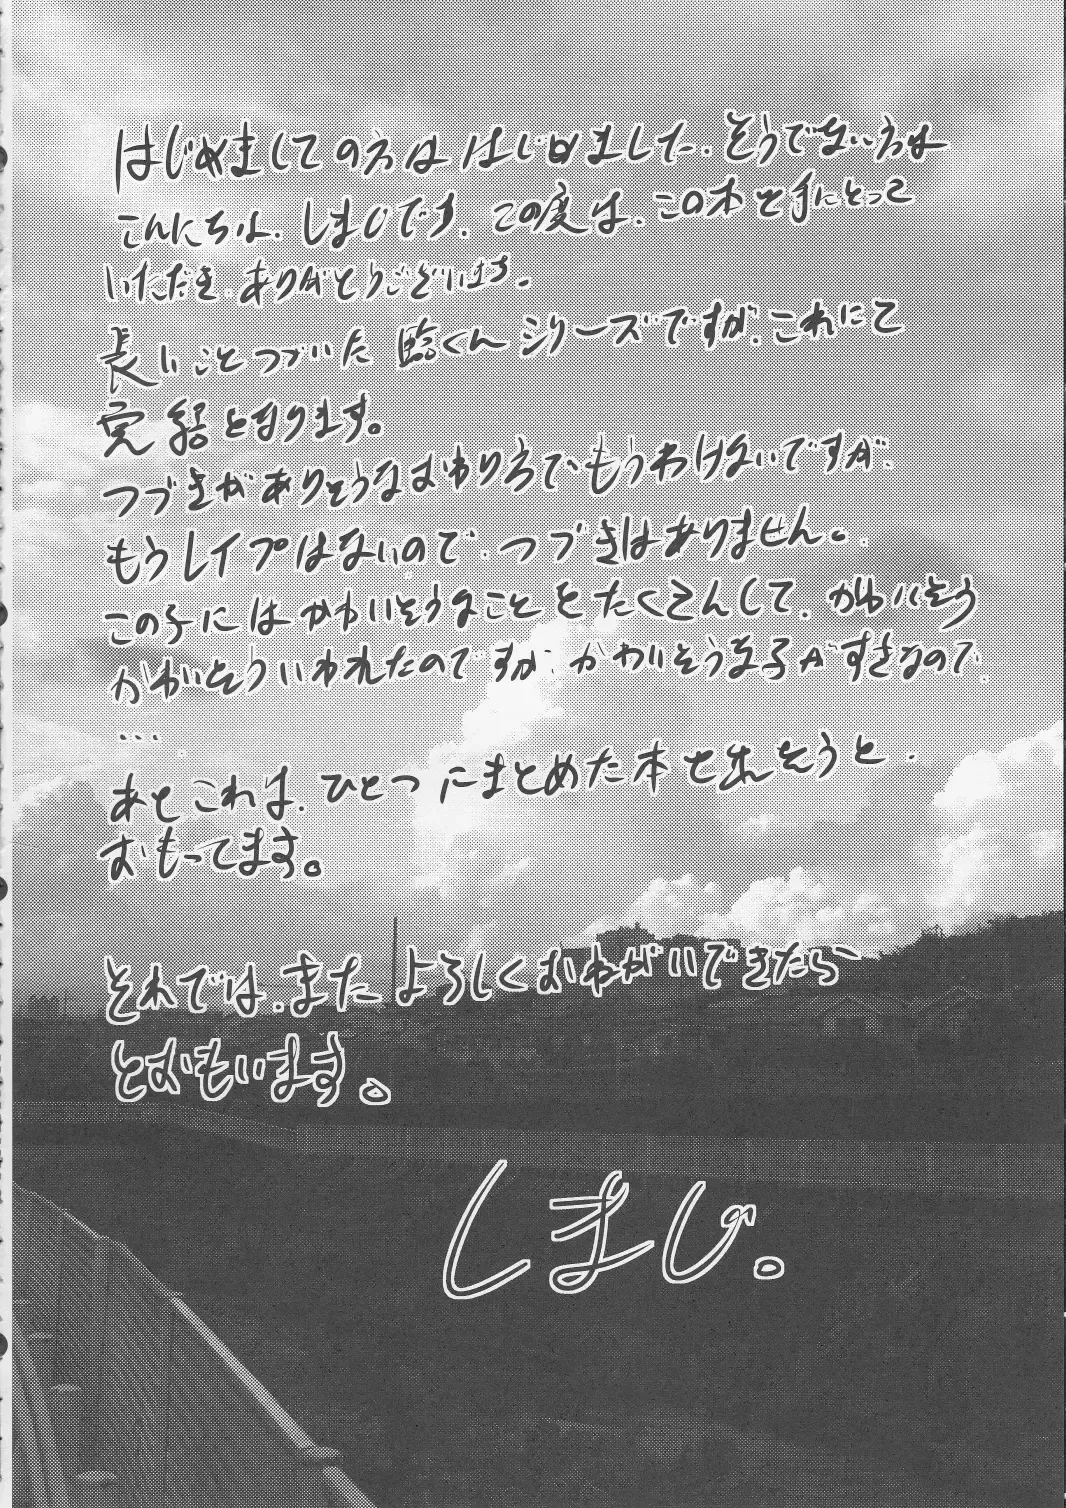 はじめましての方は はじめました、そうでない方は
こんにちは、しまじです。この度は、この本を手にとって
いただき、ありがとうございます。
長いことつづいた 臨くんシリーズですが、これにて
完結となります。
つづきがありそうなおわり方でもうしわけないですが、
もうレイプはないので、つづきはありません。
この子にはかわいそうなことをたくさんして、かわいそう
かわいそういわれたのですが、かわいそうな子がすきなので
…
あと これは、ひとつにまとめた本を出そうと
おもってます。
それでは、また よろしくおねがいできたら
とおもいます。
しまじ。